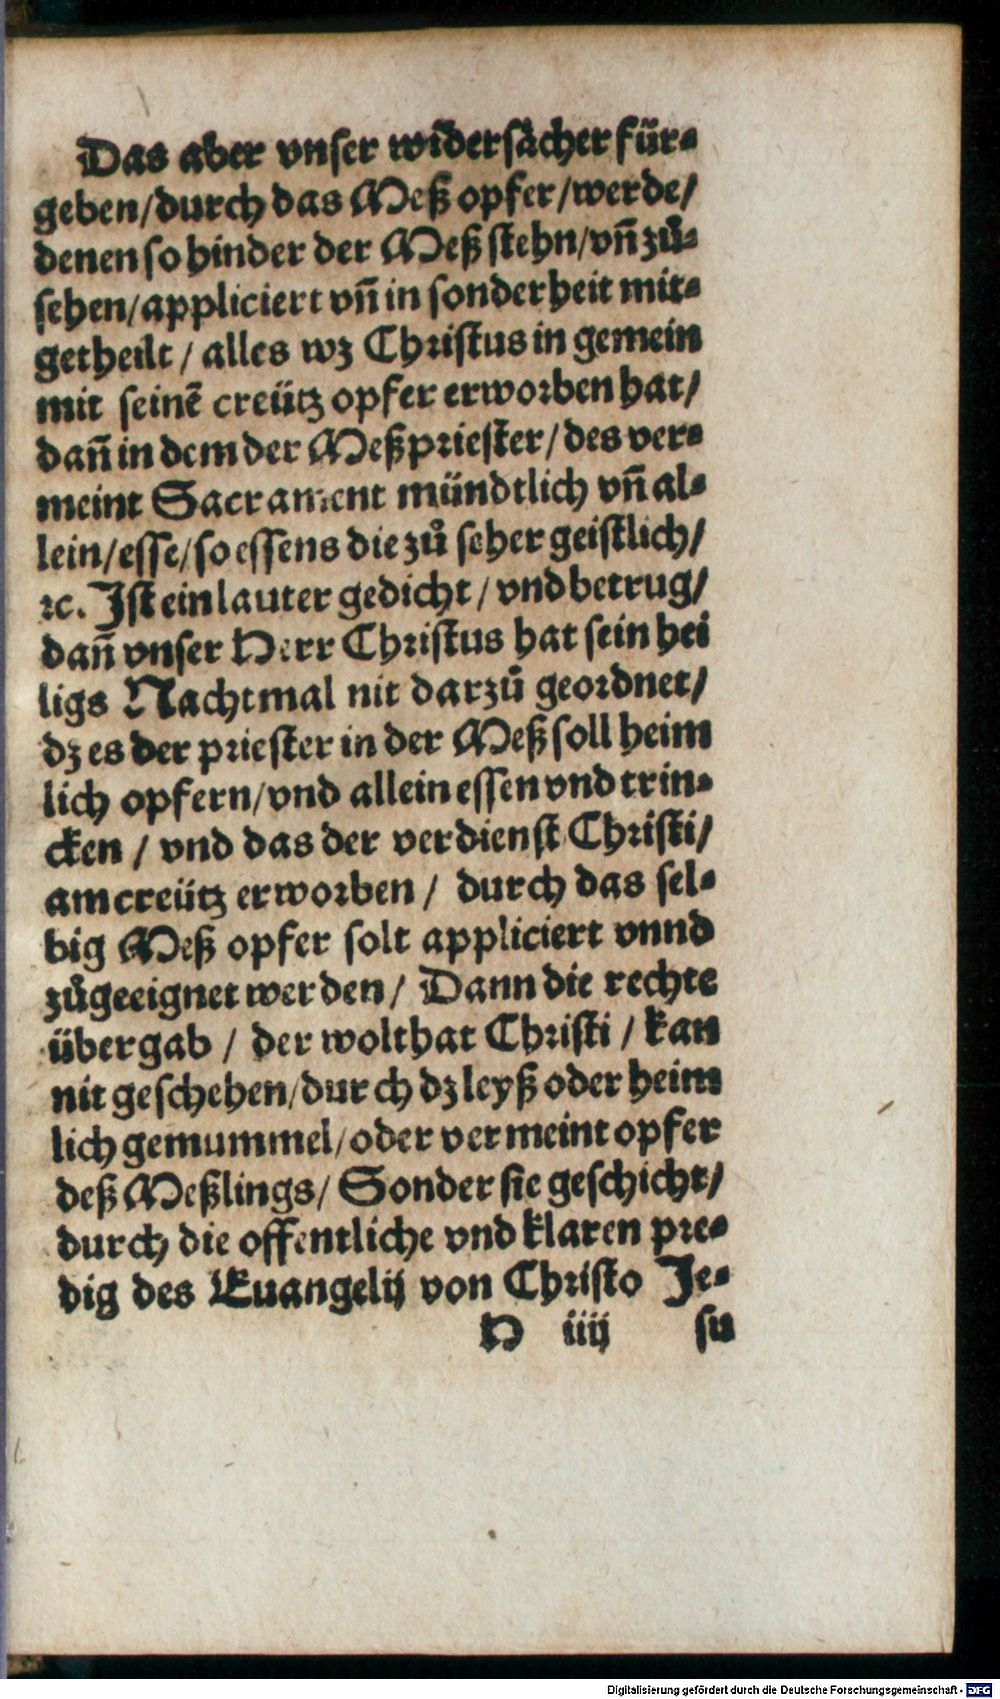 Das aber vnser widersächer für-
geben/durch das Meß opfer/werde/
denen so hinder der Meß stehn/vñ zů-
sehen/appliciert vñ in sonderheit mit-
getheilt / alles wz Christus in gemein
mit seinē creütz opfer erworben hat/
dañ in dem der Meßpriester/des ver-
meint Sacrament mündtlich vñ al-
lein/esse/so essens die zů seher geistlich/
ꝛc. Ist ein lauter gedicht / vnd betrug/
dañ vnser Herr Christus hat sein hei
ligs Nachtmal nit darzů geordnet/
dz es der priester in der Meß soll heim
lich opfern/vnd allein essen vnd trin-
cken / vnd das der verdienst Christi/
am creütz erworben / durch das sel-
big Meß opfer solt appliciert vnnd
zůgeeignet werden/ Dann die rechte
übergab / der wolthat Christi / kan
nit geschehen/durch dz leyß oder heim
lich gemummel/oder vermeint opfer
deß Meßlings/ Sonder sie geschicht/
durch die offentliche vnd klaren pre-
dig des Euangelij von Christo Je-
H iiij su
Digitalisierung gefördert durch die Deutsche Forschungsgemeinschaft - DFG